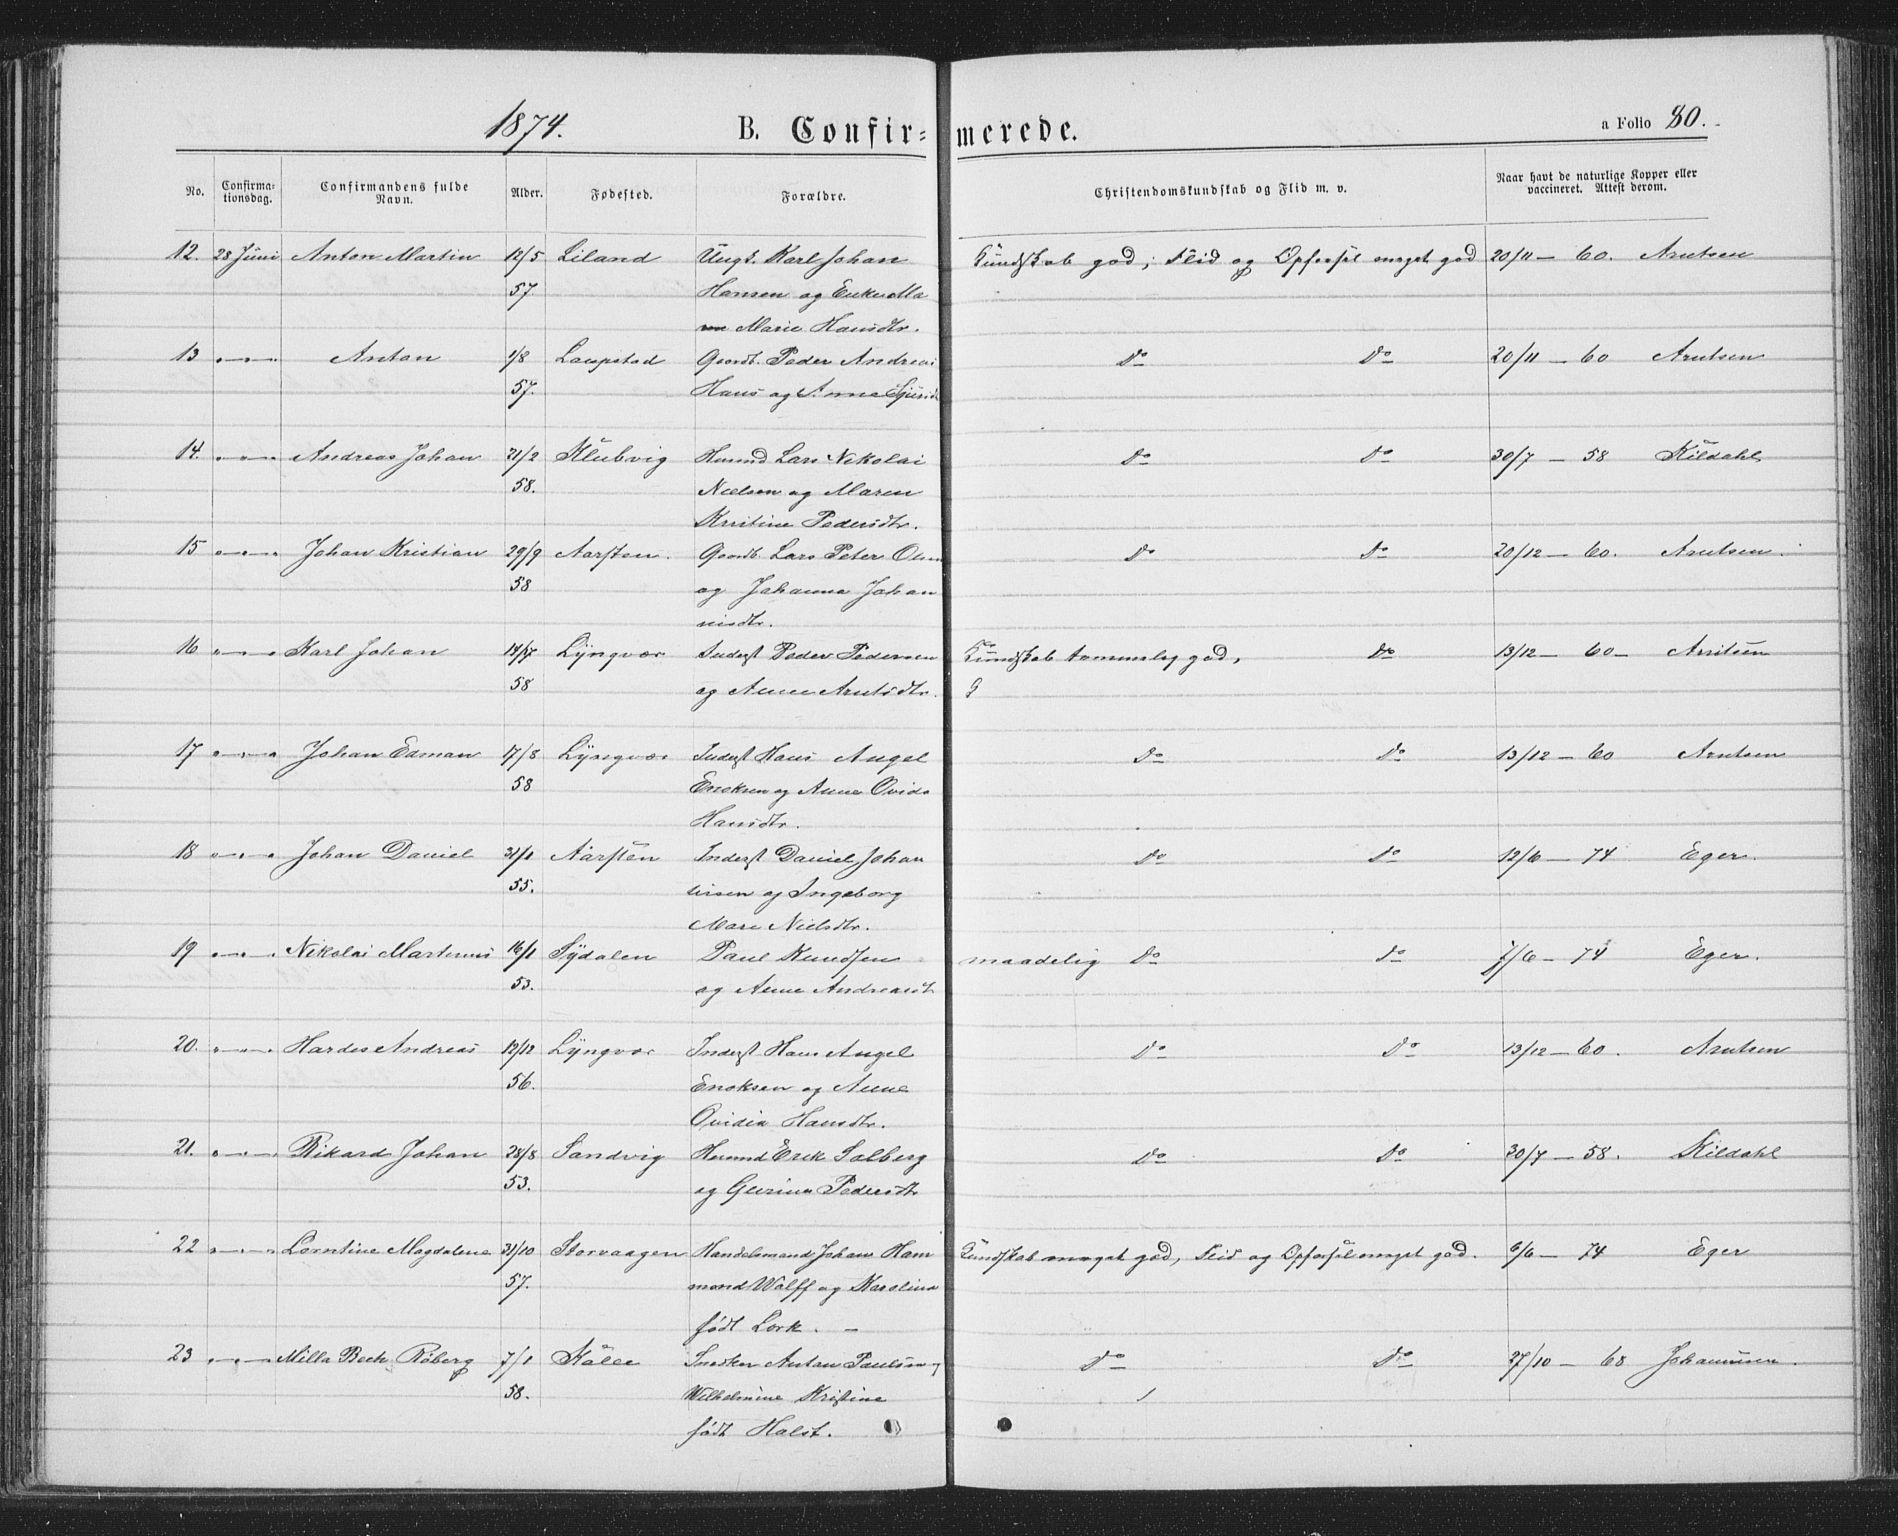 1874. B. Confir= merede. a Folio 80.
No. Confirma=tionsdag. Confirmandens fulde Navn. Alder. Fødested. Forældre. Christendomskundskab og Flid m. v. Naar havt de naturlige Kopper eller vaccineret. Attest derom.
12. 28 Juni Anton Martin 12/5 Liland Ungk. Karl Johan Kundskab god, Flid og Opførsel meget god 20/11 — 60. Arntsen
57. Hansen og Enke Ma
Marie Hansdtr.
13 Anton 1/8 Laupstad Gaardb. Peder Andreas Do Do 20/11 — 60 Arntsen
57. Hans og Anne
14. Andreas Johan 21/2 Klubvig Husmd Lars Nikolai Do Do 30/7 — 58 Kildahl
58. Nielsen og Maren
Kristine Pedersdtr.
15 Johan Kristian 29/9 Aarsten. Gaardb. Lars Peter Olsen Do Do 20/12 — 60. Arntsen.
58 og Johanna Johan
nisdtr.
16 Karl Johan Lyngvær Inderst Peder Pedersen Kundskab temmelig god, Do 13/12 — 60 — Arntsen
58 og Anne Arntsdtr.
17 Johan Edman 17/8 Lyngvær Inderst Hans Angel Do Do 13/12 — 60 Arntsen
58 Enoksen og Anne Ovida
Hansdtr.
18 Johan Daniel 31/1 Aarsten Inderst Daniel Johan Do Do 12/6 — 74 Eger.
55. nisen og Ingeborg
Mare Nielsdtr.
19 Nikolai Martinus 16/1 Sydalen Paul Knudsen maadelig Do Do 7/6 — 74 Eger.
53. og Anne Andreasdt
20. Hardes Andreas 12/12 Lyngvær Inderst Hans Angel Do Do 13/12 — 60. Arntsen
56. Enoksen og Anne
Ovidia Hansdtr.
21. Rikard Johan 28/8 Sandvig Husmd Erik Solberg Do Do 20/7 — 58. Kildahl
53. og Gurina Pedersdtr
22 Lorntine Magdalene 31/10 Storvaagen Handelsmand Johan Ham Kundskab meget god, Flid og Opførsel meget god. 6/6 — 74 Eger
57. mond Wolff og Karolina
født Lork. —
23 Milla Bech Røberg 7/1 Kalle Snedker Anton Paulsen og Do Do 27/10 — 68 Johannesen.
58. Wilhelmine Kristine
født Holst.